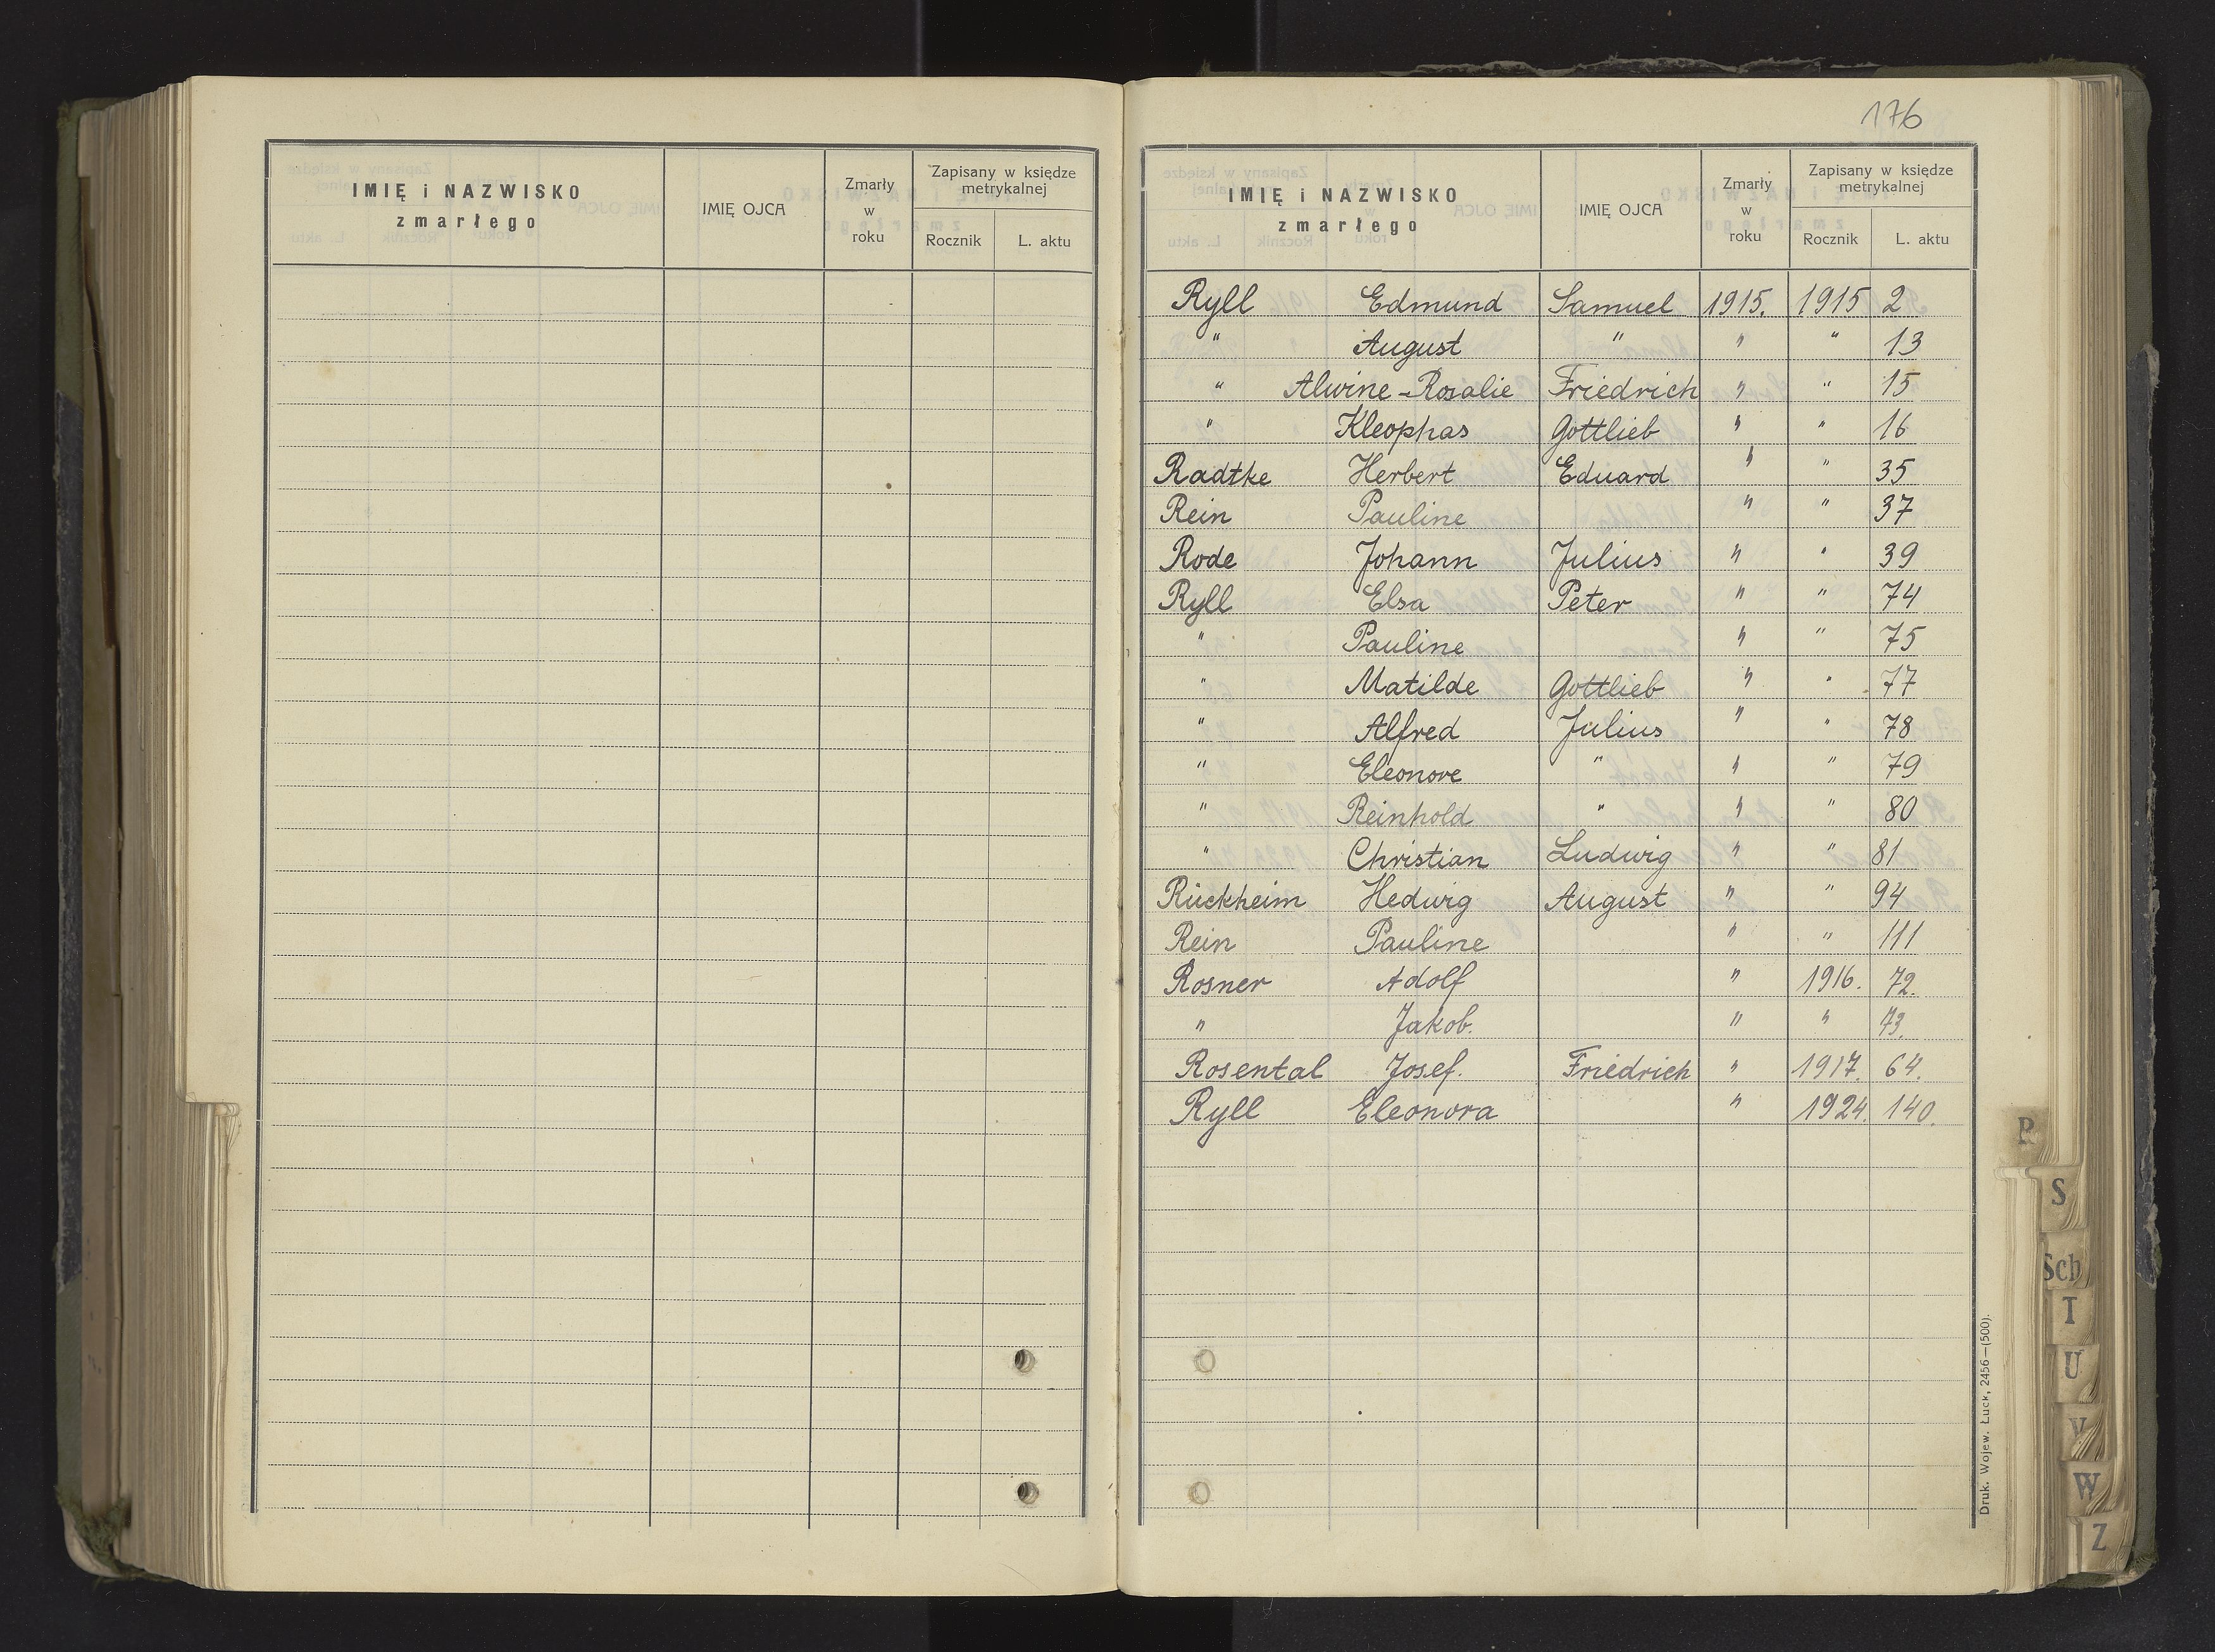 IMIĘ i NAZWISKO
zmarłego
IMIĘ OJCA
Zmarły
w
roku
Zapisany w księdze
metrykalnej
Rocznik
L. aktu
176
IMIĘ i NAZWISKO
zmarłego
IMIĘ OJCA
Zmarły
w
roku
Zapisany w księdze
metrykalnej
Rocznik
L. aktu
Ryll Edmund Samuel 1915. 1915 2
" August " " " 13
" Alwine-Rosalie Friedrich " " 15
" Kleophas Gottlieb " " 16
Radtke Herbert Eduard " " 35
Rein Pauline " " 37
Rode Johann Julius " " 39
Ryll Elsa Peter " " 74
" Pauline " " 75
" Matilde Gottlieb " " 77
" Alfred Julius " " 78
" Eleonore " " " 79
" Reinhold " " " 80
" Christian Ludwig " " 81
Rückheim Hedwig August " " 94
Rein Pauline " " 111
Rosner Adolf " 1916. 72.
" Jakob. " " 73.
Rosental Josef. Friedrich " 1917. 64.
Ryll Eleonora " 1924. 140.
Druk. Wojew. Łuck, 2456—(500).
R
S
Sch
T
U
V
W
Z